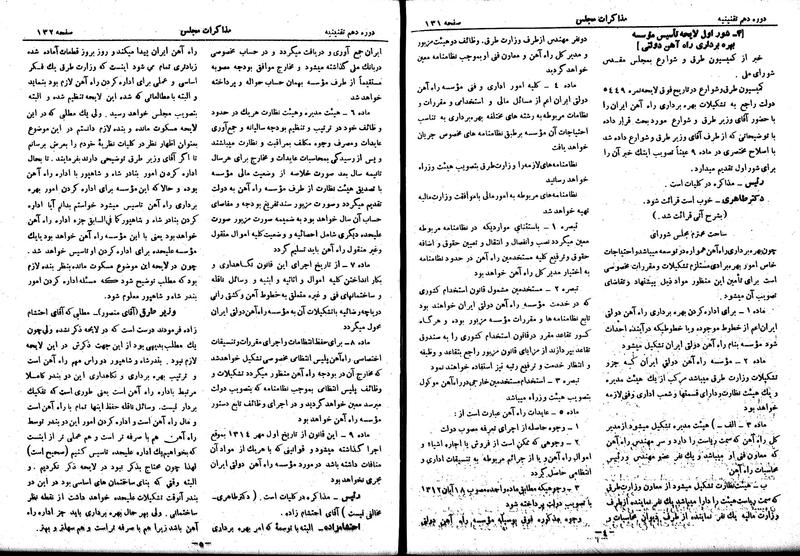 دوره دهم تقنینیه
مذاکرات مجلس
صفحه ۱۳۱
[۳ـ شور اول لایحه تأسیس مؤسسه
بهره برداری راه آهن دولتی]
خبر از کمیسیون طرق و شوارع بمجلس مقدس
شورای ملی.
کمیسیون طرق وشوارع در تاریخ فوق لایحه نمره ۵۴۴۹
دولت راجع به تشکیلات بهره برداری راه آهن ایران را
با حضور آقای وزیر طرق و شوارع مورد بحث قرار داده
با توضیحاتی که از طرف آقای وزیر طرق و شوارع داده شد
با اصلاح مختصری در ماده ۹ عیناً تصویب اینك خبر آن را
برای شور اول تقدیم میدارد.
رئیس ـ مذاکره در کلیات است.
دکترطاهری ـ خوب است قرائت شود.
(بشرح آتی قرائت شد.)
ساحت محترم مجلس شورای
چون بهره برداری راه آهن همواره در توسعه میباشد و احتیاجات
خاص امور بهره برداری مستلزم تشکیلات و مقررات مخصوصی
است برای تأمین این منظور مواد ذیل پیشنهاد و تقاضای
تصویب آن میشود.
ماده ۱ ـ برای اداره کردن بهره برداری راه آهن دولتی
ایران اعم از خطوط موجوده و یا خطوطیکه در آینده احداث
شود مؤسسه بنام راه آهن دولتی ایران تشکیل میشود.
ماده ۲ ـ مؤسسه راه آهن دولتی ایران که جزو
تشکیلات وزارت طرق میباشد مرکب از یك هیئت مدیره
و یك هیئت نظارت و دارای قسمتها و شعب اداری وفنی لازمه
خواهد بود
ماده ۳ ـ الف ـ) هیئت مدیره تشکیل میشود از مدیر
کل راه آهن که سمت ریاست را دارد و سر مهندس راه آهن
که معاون فنی او میباشد و یك نفر عضو مهندس و رئیس
محاسبات راه آهن
ب ـ هیئت نظارت تشکیل میشود از معاون وزارت طرق
که سمت ریاست هیئت را دارا میباشد یك نفر نماینده از طرف
وزارت مالیه یك نفر نماینده از طرف دیوان محاسبات و
دو نفر مهندس از طرف وزارت طرق. وظائف دو هیئت مزبور
و مدیر کل راه آهن و معاون فنی او بموجب نظامنامه معین
خواهد گردید
ماده ٤ ـ کلیه امور اداری و فنی مؤسسه راه آهن
دولتی ایران اعم از مسائل مالی و استخدامی و مقررات و
نظامات مربوطه به رشته های مختلفه بهره برداری به تناسب
احتیاجات آن مؤسسه بر طبق نظامنامه های مخصوص جریان
خواهد یافت
نظامنامه های لازمه را وزارت طرق بتصویب هیئت وزراء
خواهد رسانید
نظامنامه های مربوطه به امور مالی با موافقت وزارت مالیه
تهیه خواهد شد
تبصره ۱ ـ باستثنای مواردیکه در نظامنامه مربوطه
معین میگردد نصب و انفصال و انتقال و تعیین حقوق و اضافه
حقوق و ترفیع کلیه مستخدمین راه آهن در حدود نظامنامه
به اختیار مدیر کل راه آهن خواهد بود
تبصره ۲ ـ مستخدمین مشمول قانون استخدام کشوری
که در خدمت مؤسسه راه آهن دولتی ایران خواهند بود
تابع نظامنامه ها و مقررات مؤسسه مزبور بوده و هرگاه
کسور تقاعد مقرر در قانون استخدام کشوری را به صندوق
تقاعد بپردازند از مزایای قانون مزبور راجع بتقاعد و وظیفه
و انتظار خدمت و ترفیع رتبه نیز استفاده خواهند نمود
تبصره ۳ ـ استخدام مستخدمین خارجی در راه آهن موکول
بتصویب هیئت وزیره میباشد
ماده ٥ ـ عایدات راه آهن عبارت است از:
۱ ـ وجوه حاصله از اجرای تعرفه مصوب دولت
۲ ـ وجوهی که ممکن است از فروش یا اجاره اشیاء و
اموال راه آهن و یا از جرائم مربوطه به تنسیقات اداری و
انتظامی حاصل گردد
۳ ـ وجوهی که مطابق ماده واحده مصوب ۱۸ آبان ۱۳۱۲
با تصویب دولت پرداخته میشود
وجوه مذکوره فوق بوسیله مؤسسه راه آهن دولتی
ـ ٤ ـ
دوره دهم تقنینیه
مذاکرات مجلس
صفحه ۱۳۲
ایران جمع آوری و دریافت میگردد و در حساب مخصوصی
در بانك ملی گذاشته میشود و مخارج موافق بودجه مصوبه
مستقیماً از طرف مؤسسه بهمان حساب حواله و پرداخته
خواهد شد
ماده ٦ ـ هیئت مدیره و هیئت نظارت هر یك در حدود
وظائف خود در ترتیب و تنظیم بودجه سالیانه و جمع آوری
عایدات و مصرف وجوه مکلف بمراقبت و نظارت میباشند
و پس از رسیدگی بمحاسبات عایدات و مخارج برای هر سال
تا نیمه سال بعد صورت خلاصه از وضعیت مالی مؤسسه
با تصدیق هیئت نظارت از طرف مؤسسه راه آهن به دولت
تقدیم میگردد و صورت مزبور سند تفریغ بودجه و مفاصای
حساب آن سال خواهد بود به ضمیمه صورت مزبور صورت
علیحده دیگری شامل احصائیه و وضعیت کلیه اموال منقول
و غیر منقول راه آهن باید تسلیم گردد
ماده ۷ ـ از تاریخ اجرای این قانون نگاهداری و
بکار انداختن کلیه اموال و اثاثیه و ابنیه و وسائل ناقله
و ساختمانهای فنی و غیره متعلق به خطوط آهن و کشتی رانی
دریاچه رضائیه با تشکیلات آن به مؤسسه راه آهن دولتی ایران
محول میگردد
ماده ۸ ـ برای حفظ انتظامات و اجرای مقررات و تنسیقات
اختصاصی راه آهن پلیس انتظامی مخصوصی تشکیل خواهد شد
که مخارج آن در بودجه راه آهن منظور میگردد و تشکیلات و
وظائف پلیس انتظامی بموجب نظامنامه که بتصویب دولت
میرسد معین خواهد گردید و در اجرای وظائف تابع دستور
مؤسسه راه آهن خواهد بود
ماده ۹ ـ این قانون از تاریخ اول مهر ۱۳۱٤ بموقع
اجرا گذاشته میشود و قوانینی که با هر یك از مواد آن
منافات داشته باشد در مورد مؤسسه راه آهن دولتی ایران
مجری نخواهد بود
رئیس ـ مذاکره در کلیات است. (دکترطاهری ـ
مخالفی نیست) آقای احتشام زاده.
احتشامزاده ـ البته با توسعه که امر بهره برداری
راه آهن ایران پیدا میکند و روز بروز قطعات آماده شده
زیادتری تمام می شود اینست که وزارت طرق یك فکر
اساسی و عملی برای اداره کردن راه آهن لازم بود بنماید
و البته با مطالعاتی که شده این لایحه تنظیم شده و البته
بتصویب مجلس خواهد رسید. ولی یك مطلبی که در این
لایحه مسکوت مانده و بنده لازم دانستم در این موضوع
بعنوان اظهار نظر در کلیات نظریۀ خودم را بعرض برسانم
تا اگر آقای وزیر طرق توضیحی دارند بفرمایند. تا بحال
اداره کردن امور بنادر شاه و شاهپور با اداره راه آهن
بوده و حالا که این مؤسسه برای اداره کردن امور بهره
برداری راه آهن تاسیس میشود خواستم بدانم آیا اداره
کردن بنادر شاه و شاهپور کما فی السابق جزء اداره راه آهن
خواهد بود یعنی با این مؤسسه راه آهن خواهد بود یا یك
مؤسسه علیحده برای اداره کردن او تاسیس خواهد شد.
چون در لایحه این موضوع مسکوت مانده بنظر بنده لازم
بود که مطلب توضیح شود که مسئله اداره کردن امور
بندر شاه و شاهپور معلوم شود.
وزیر طرق (آقای منصور) ـ مطلبی که آقای احتشام
زاده فرمودند درست است که در لایحه ذکر نشده ولی چون
یك مطلب بدیهی بود از این جهت ذکرش در این لایحه
لازم نبود. بندر شاه و شاهپور دو راس مهم راه آهن است
و ترتیب بهره برداری و نگاهداری این دو بندر کاملا
مرتبط باداره راه آهن است یعنی طوری است که تفکیك
بردار نیست. وسائل ناقله حفظ اینها تمام با راه آهن است
و مال راه آهن است و اداره کردن امور این دو بندر توسط
راه آهن هم با صرفه تر است و هم عملی تر از اینست
که بخواهیم یك اداره علیحده تاسیس کنیم (صحیح است)
لهذا چون محتاج بذکر نبود در لایحه ذکر نکردیم. و
البته وقتی که بنای ساختمان های اساسی بود در این دو
بندر آنوقت تشکیلات علیحده خواهند داشت از نقطه نظر
ساختمانی. ولی بهر حال بهره برداری باید جزء اداره راه
آهن باشد زیرا هم با صرفه تر است و هم سهلتر و بهتر.
ـ ٥ ـ